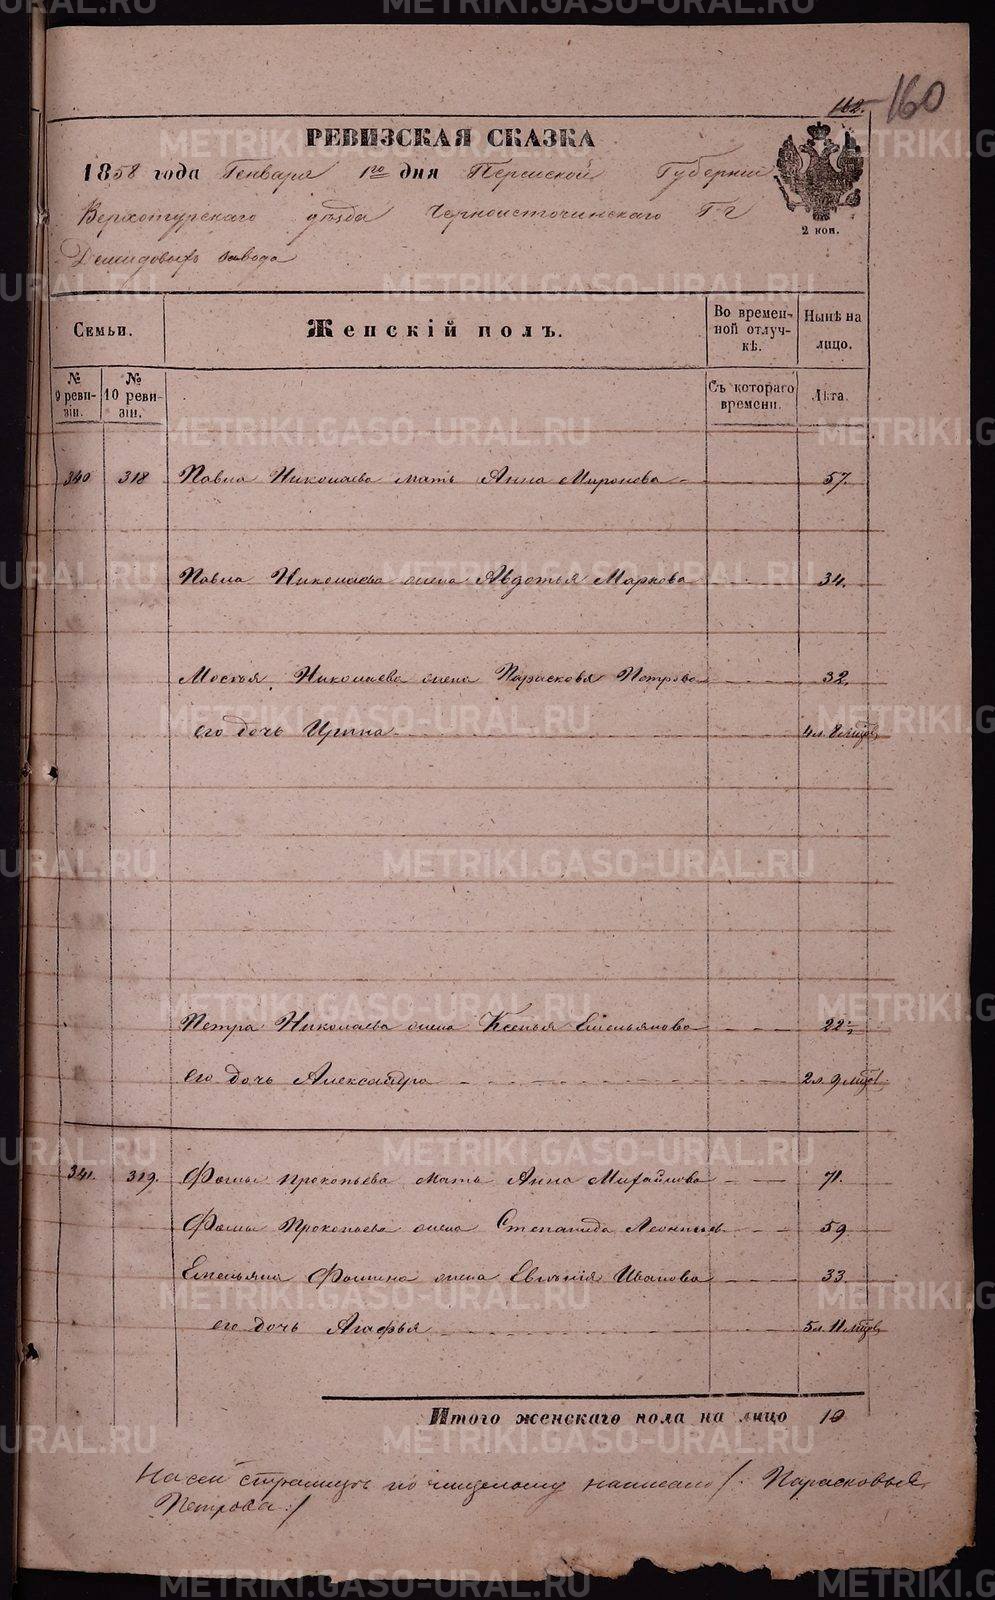 162. 160
РЕВИЗСКАЯ СКАЗКА
1858 года Генваря 1го дня Пермской Губернии
Верхотурскаго уѣзда Черноисточинскаго Гг
Демидовыхъ завода
2 коп.
Семьи. Женскій полъ. Во времен- Нынѣ на
ной отлуч- лицо.
кѣ.
№ № Съ котораго Лѣта.
9 реви- 10 реви- времени.
зіи. зіи.
340 318 Павла Николаева мать Анна Миронова 57.
Павла Николаева жена Авдотья Маркова 34.
Николаева жена Парасковья Петрова 32.
его дочь Ирина 4л. 8 мцов
Петра Николаева жена Ксенья Емельянова 22
его дочь Александра 2л. 9 мцов
341. 319. Фомы Прокопьева мать Анна Михайлова 71.
Фомы Прокопьева жена Степанида Леонтьев 59
Емельяна Фомина жена Евгенія Иванова 33
его дочь Агафья 5л. 11 мцов
Итого женскаго пола на лицо 10
На сей страницѣ по чищеному написано /: Парасковья
Петрова :/
METRIKI.GASO-URAL.RU